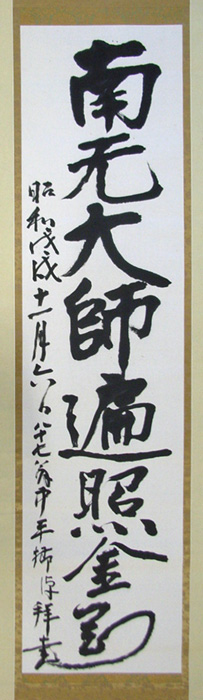 南无大師遍照金剛
昭和戊戌十一月六日八十七翁中平 拜書